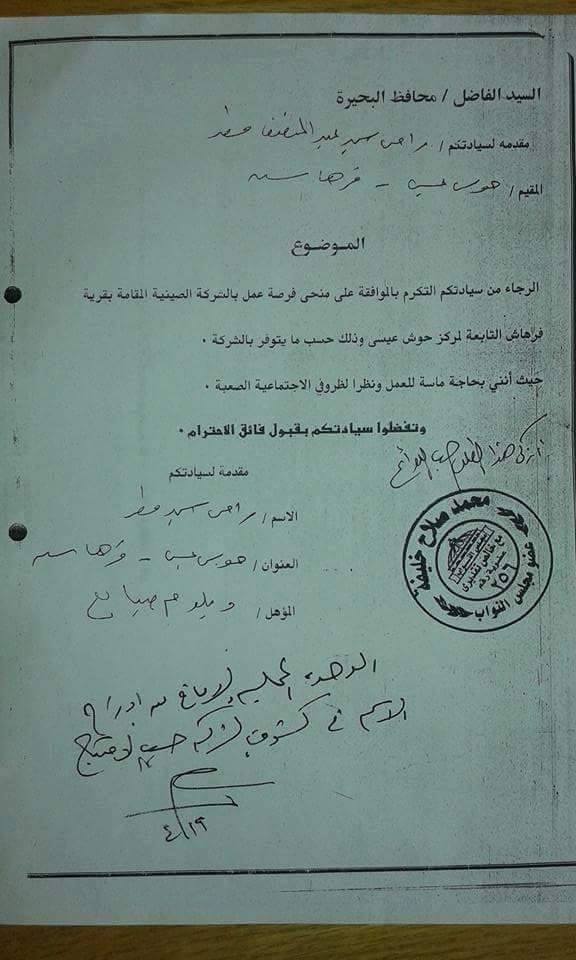 السيد الفاضل / محافظ البحيرة
مقدمه لسيادتكم / سيد عبد مطر
المقيم / حوش عيسى - فرهاش
الموضوع
الرجاء من سيادتكم التكرم بالموافقة على منحى فرصة عمل بالشركة الصينية المقامة بقرية
فراهاش التابعة لمركز حوش عيسى وذلك حسب ما يتوفر بالشركة .
حيث أنني بحاجة ماسة للعمل ونظرا لظروفي الاجتماعية الصعبة .
وتفضلوا سيادتكم بقبول فائق الاحترام .
أزكى هذا الطلب حسب
مقدمة لسيادتكم
الاسم / سيد مطر
العنوان / حوش عيسى - فرهاش
المؤهل / دبلوم صنايع
محمد صلاح خليفة
مع خالص تقديرى
٢٥٦
عضو مجلس النواب
الوحدة المحلية
الاسم في كشوف الشركة حسب
٤/١٩